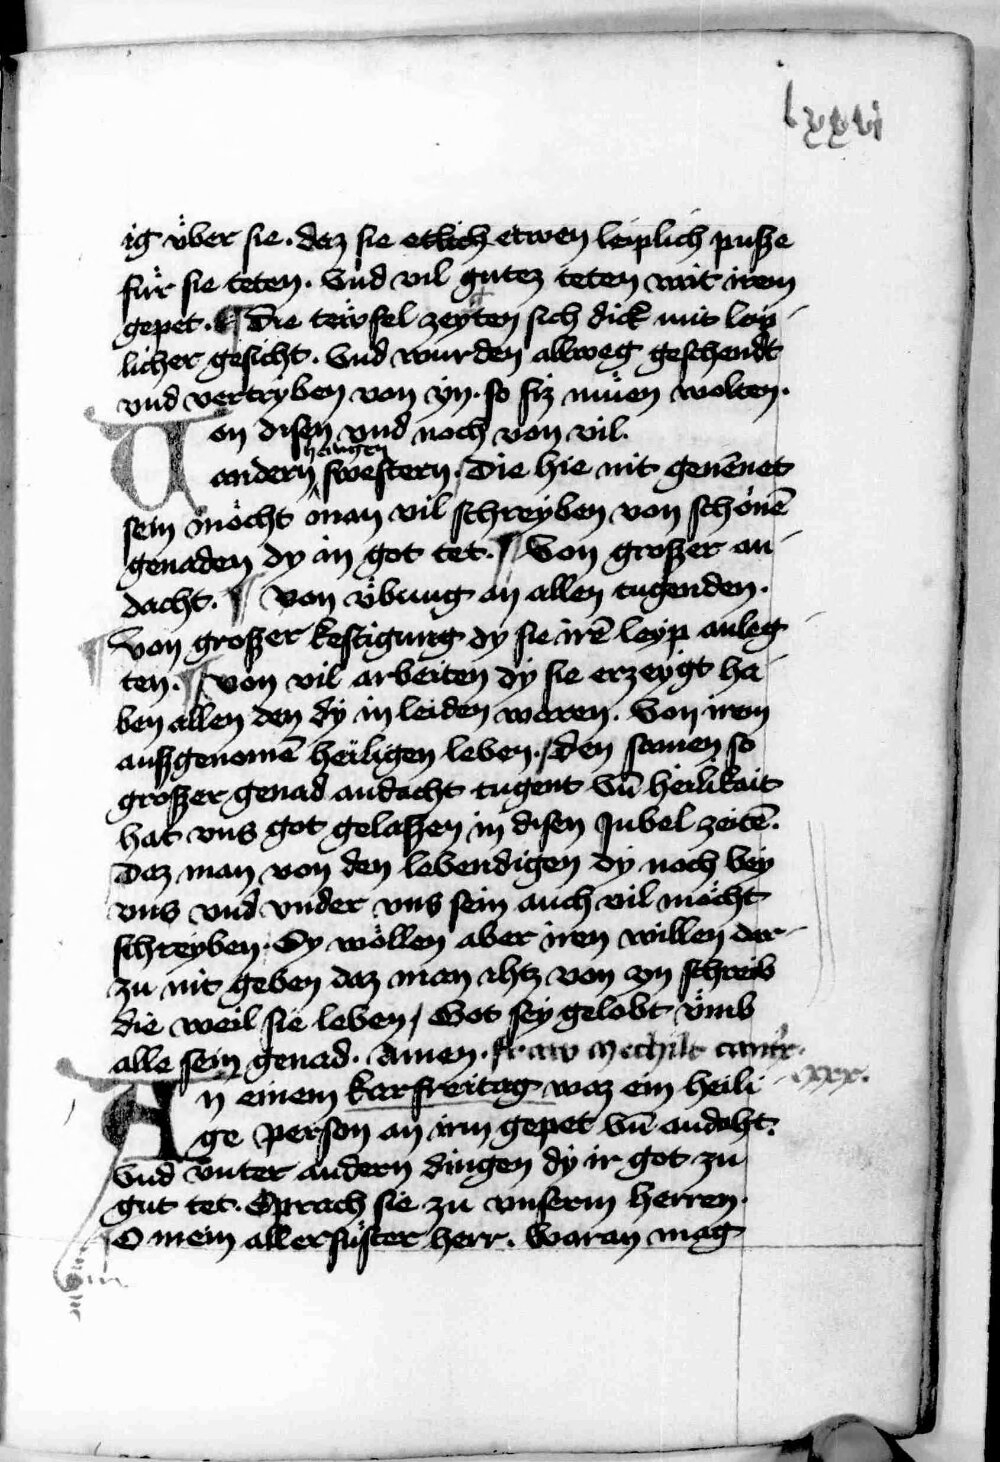 lxxxvi
ig vͤber sie. daz sie etlich etwen leiplich pusße
fuͤr sie teten. Vnd vil gutez teten mit irem
gepet. ¶ Die teẅfel zeyten sich dick mit leip
licher gesicht. Vnd wurden allweg geschendt
vnd vertryben von yn. so siz muͤen wolten.
Von disen vnd noch von vil.
heiligen
andern swestern. Die hie nit genēnet
sein moͤcht man vil schreyben von schoͤnē
genaden dy in got tet. ¶ Von großer an
dacht. ¶ Von vͤbung an allen tugenden.
¶ Von großer kestigung dy sie irē leyp anleg
ten. ¶ Von vil arbeiten dy sie erzeygt ha
ben allen den dy in leiden waren. Von irem
außgenomē heiligen leben. den samen so
großer genad andacht tugent vn̄ heilikait
hat vns got gelaßen in disen Jubel zeitē.
Daz man von den lebendigen dy noch bey
vns vnd vnder vns sein auch vil moͤcht
schreyben. Dy woͤllen aber iren willen dar
zu nit geben daz man ihtz von yn schreib
die weil sie leben / Got sey gelobt vͤmb
alle sein genad. Amen. fraw Mechilt
xxx.
An einem karfreitag waz ein heili
ge person an irm gepet vn̄ andaht.
Vnd vnter andern dingen dy ir got zu
gut tet. Sprach sie zu vnserm herren.
O mein aller suͤster herr. Waran mag